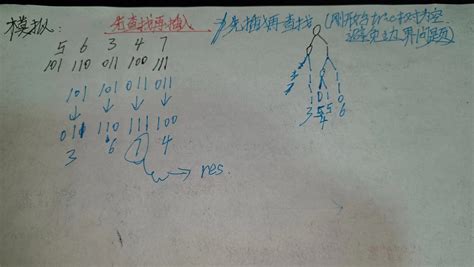 模拟: 先查找再插入 先插再查找 (刚开始trie树为空
避免边界问题)
5 6 3 4 7
101 110 011 100 111
101 101 011
↓ ↓ ↓ ↓
011 110 111 100
3 6 7 4
→ res.
3 5 5 6
4